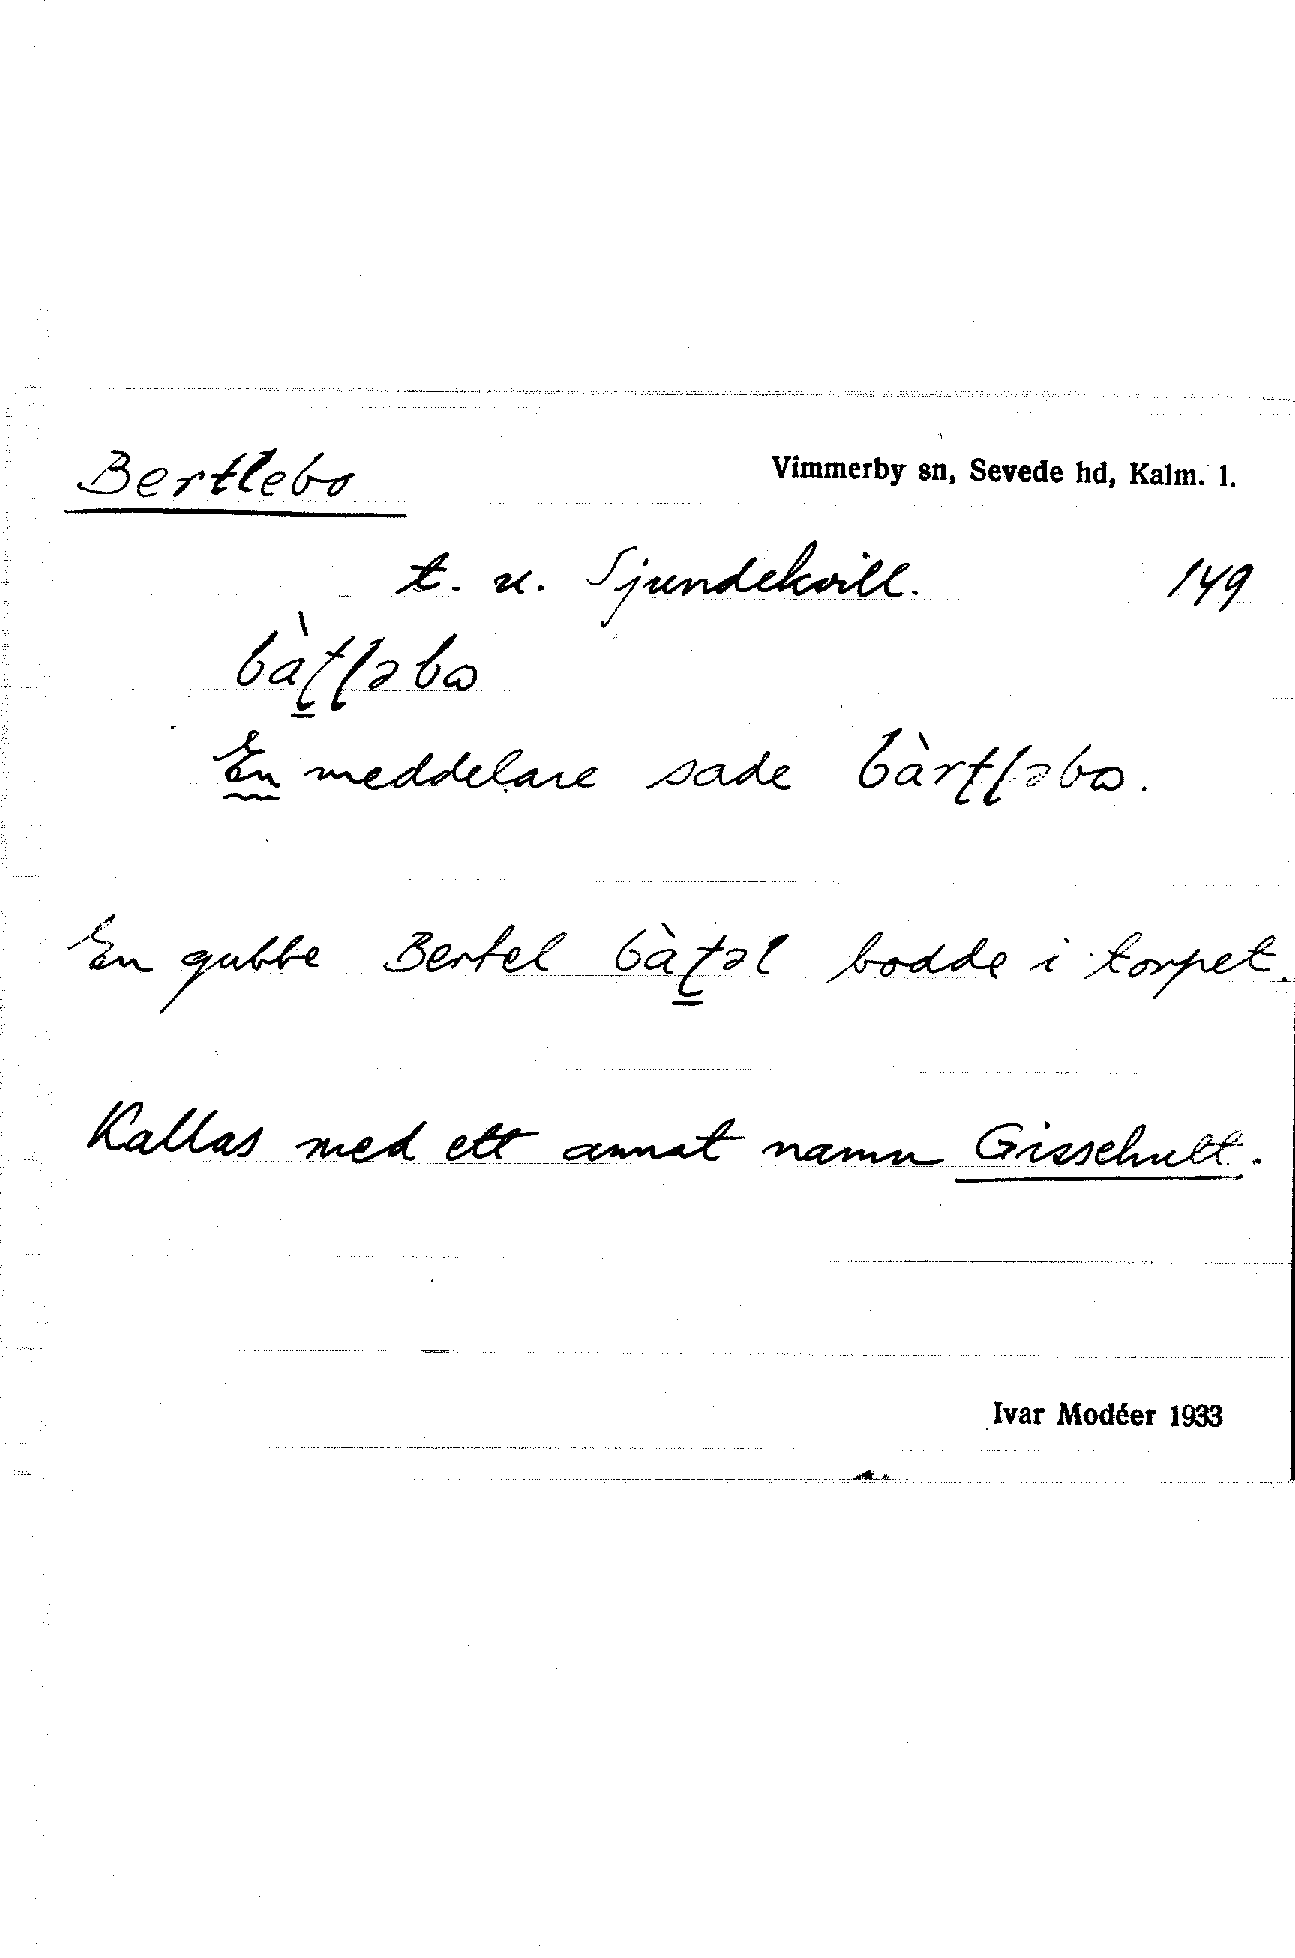 Bertlebo
Vimmerby sn, Sevede hd, Kalm. l.
t. u. Sjundekvill. 149
bàʈɭəbω
En meddelare sade bàrʈɭəbω.
En gubbe Bertel bàʈəl bodde i torpet.
Kallas med ett annat namn Gissehult.
Ivar Modéer 1933